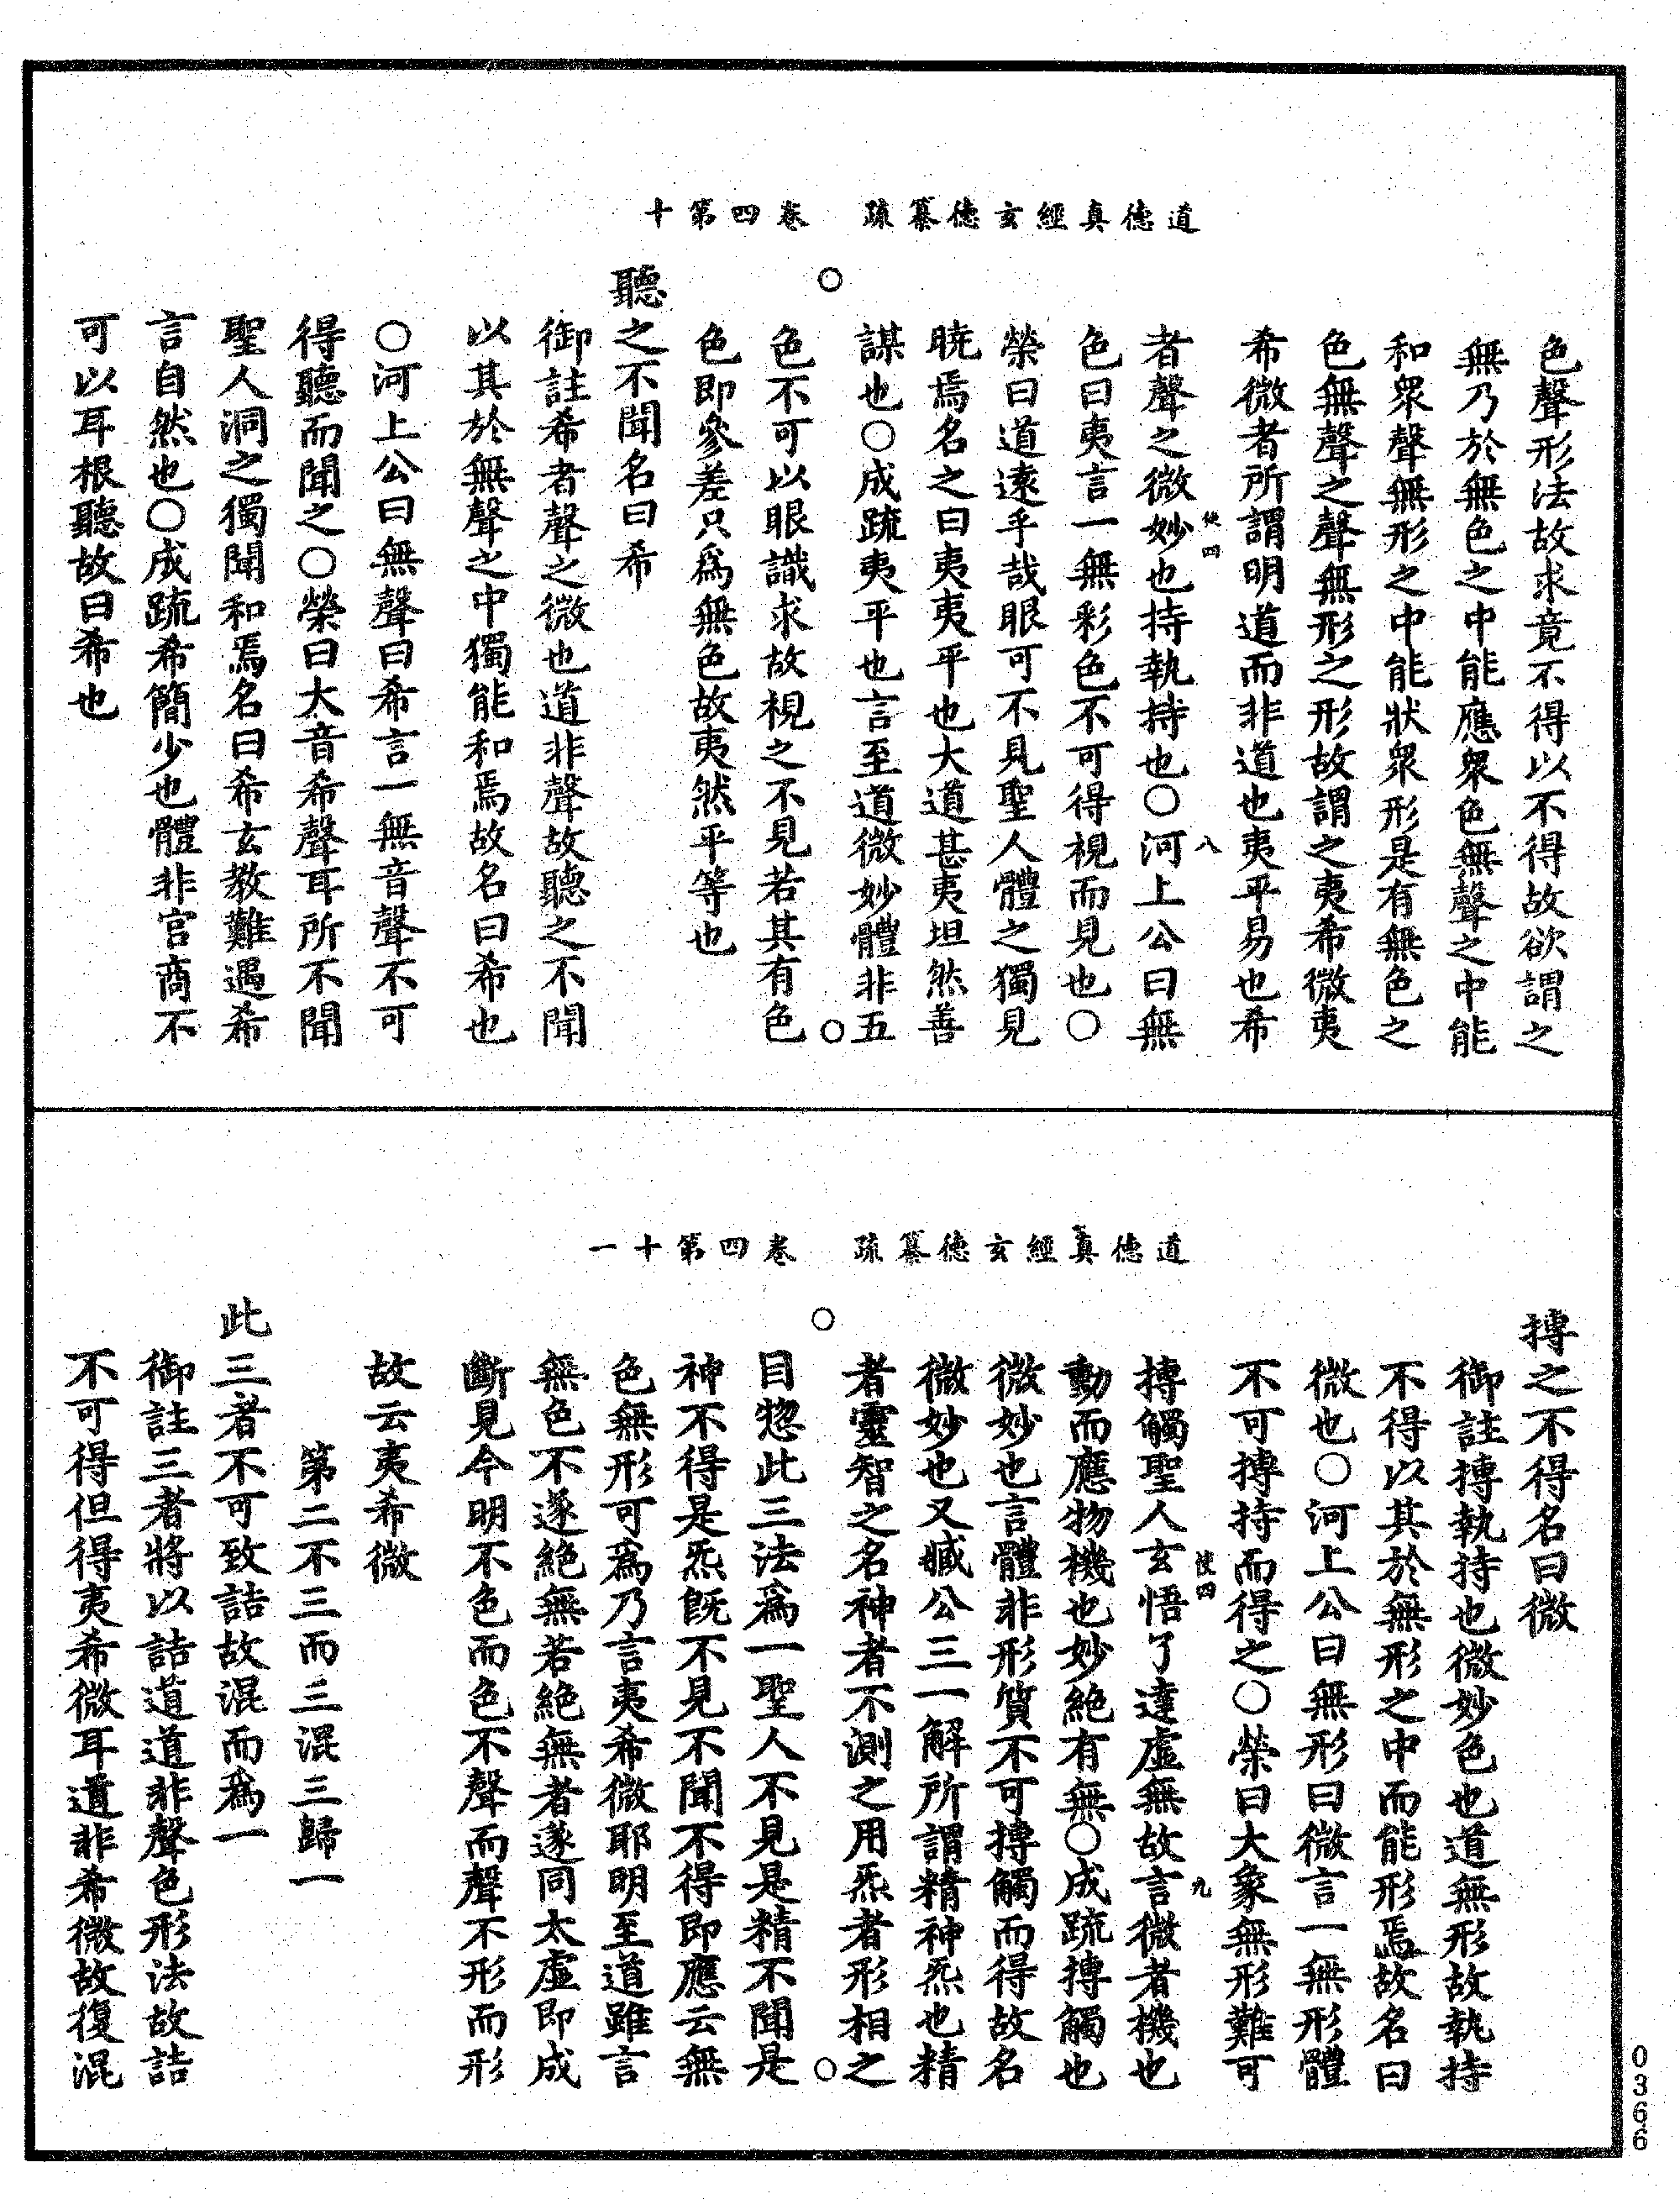 道德真經玄德纂疏　卷四第十
色聲形法故求竟不得以不得故欲謂之
無乃於無色之中能應衆色無聲之中能
和衆聲無形之中能狀衆形是有無色之
色無聲之聲無形之形故謂之夷希微夷
希微者所謂明道而非道也夷平易也希
者聲之微妙也持執持也○河上公曰無
色曰夷言一無彩色不可得視而見也○
榮曰道遠乎哉眼可不見聖人體之獨見
曉焉名之曰夷夷平也大道甚夷坦然善
謀也○成疏夷平也言至道微妙體非五
色不可以眼識求故視之不見若其有色
色即參差只爲無色故夷然平等也
聽之不聞名曰希
御註希者聲之微也道非聲故聽之不聞
以其於無聲之中獨能和焉故名曰希也
○河上公曰無聲曰希言一無音聲不可
得聽而聞之○榮曰大音希聲耳所不聞
聖人洞之獨聞和焉名曰希玄教難遇希
言自然也○成疏希簡少也體非宮商不
可以耳根聽故曰希也
四
八
道德真經玄德纂疏　卷四第十一
摶之不得名曰微
御註摶執持也微妙色也道無形故執持
不得以其於無形之中而能形焉故名曰
微也○河上公曰無形曰微言一無形體
不可摶持而得之○榮曰大象無形難可
摶觸聖人玄悟了達虛無故言微者機也
動而應物機也妙絶有無○成疏摶觸也
微妙也言體非形質不可摶觸而得故名
微妙也又臧公三一解所謂精神炁也精
者靈智之名神者不測之用炁者形相之
目惣此三法爲一聖人不見是精不聞是
神不得是炁旣不見不聞不得即應云無
色無形可爲乃言夷希微耶明至道雖言
無色不遂絶無若絶無者遂同太虛即成
斷見今明不色而色不聲而聲不形而形
故云夷希微
第二不三而三混三歸一
此三者不可致詰故混而爲一
御註三者將以詰道道非聲色形法故詰
不可得但得夷希微耳道非希微故復混
四
九
0366